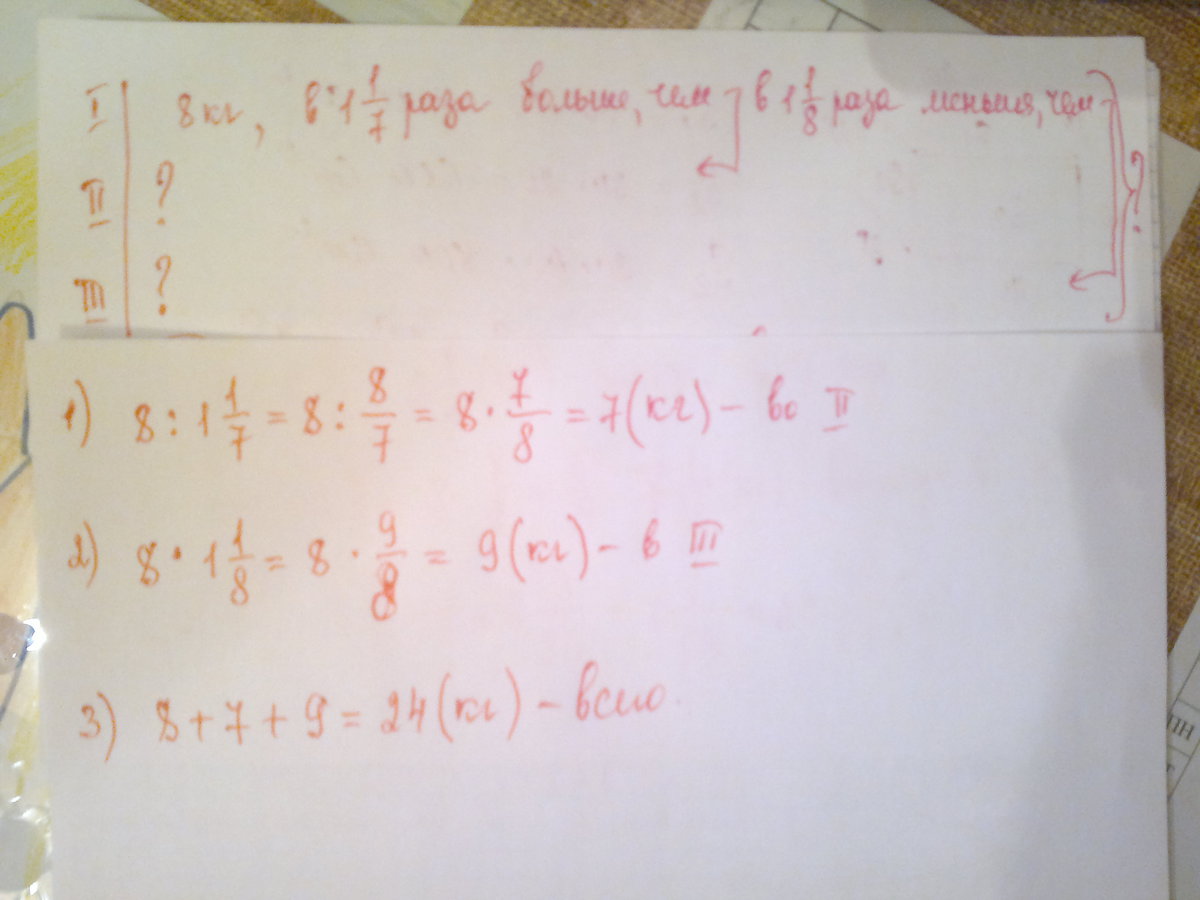 I 8 кг, в 1 1/7 раза больше, чем в 1 1/8 раза меньше, чем
II ? ?
III ?
1) 8 : 1 1/7 = 8 : 8/7 = 8 · 7/8 = 7 (кг) – во II
2) 8 · 1 1/8 = 8 · 9/8 = 9 (кг) – в III
3) 8 + 7 + 9 = 24 (кг) – всего